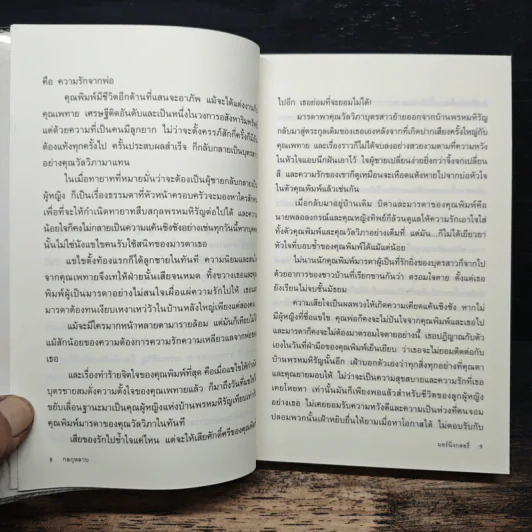 คือ ความรักจากพ่อ
คุณพิมพ์มีชีวิตอีกด้านที่แสนจะอาภัพ แม้จะได้แต่งงานกับ
คุณเพทาย เศรษฐีติดอันดับและเป็นหนึ่งในวงการอสังหาริมทรัพย์
แต่ด้วยความที่เป็นคนมีลูกยาก ไม่ว่าจะตั้งครรภ์สักกี่ครั้งก็
ต้องแท้งทุกครั้งไป ครั้นประสบผลสำเร็จ ก็กลับกลายเป็นบุตร
อย่างคุณวัลวิภามาแทน
ในเมื่อทายาทที่หมายมั่นว่าจะต้องเป็นผู้ชายกลับกลายเป็น
ผู้หญิง ก็เป็นเรื่องธรรมดาที่หัวหน้าครอบครัวจะมองหาใครสัก
เพื่อที่จะให้กำเนิดทายาทสืบสกุลพรหมหิรัญต่อไปได้ และ
น้อยใจก็คงไม่กลายเป็นความแค้นชิงชังอย่างเช่นทุกวันนี้หาก
นั้นไม่ใช่นังแขไขคนรับใช้สนิทของมารดาเธอ
แขไขตั้งท้องแรกก็ได้ลูกชายในทันที ความนิยมและ
จากคุณเพทายจึงเทให้ฝ่ายนั้นเสียจนหมด ทิ้งขว้างเธอและ
พิมพ์ผู้เป็นมารดาอย่างไม่สนใจเผื่อแผ่ความรักไปให้ เธอและ
มารดาต้องทนเงียบเหงาเศร้าในบ้านหลังใหญ่เพียงแค่สองคน
แม้จะมีใครมากหน้าหลายตามารายล้อม แต่มันก็เทียบไม่
แม้สักน้อยของความต้องการความรักความเหลียวแลจาก
เธอ
และเรื่องทำร้ายจิตใจของคุณพิมพ์ที่สุด คือเมื่อแขไขให้
บุตรชายสมดั่งความตั้งใจของคุณเพทายแล้ว ก็มาถึงวันที่
ขยับเลื่อนฐานะมาเป็นคุณผู้หญิงแห่งบ้านพรหมหิรัญเทียบ
คุณพิมพ์มารดาของคุณวัลวิภาในทันที
เสียของรักไปช้ำใจแค่ไหน แต่จะให้เสียศักดิ์ศรีของคุณ
8 กลกุหลาบ
ไปอีก เธอย่อมที่จะยอมไม่ได้!
มารดาพาคุณวัลวิภาบุตรสาวย้ายออกจากบ้านพรหมหิรัญ
กลับมาสู่ตระกูลเดิมของเธอเองหลังจากที่เกิดปากเสียงครั้งใหญ่กับ
คุณเพทาย และเรื่องราวก็ไม่ได้จบลงอย่างสวยงามตามที่ความหวัง
ในหัวใจแอบนึกฝันเอาไว้ ใจผู้ชายเปลี่ยนง่ายยิ่งกว่าจิ้งจกเปลี่ยน
สี และความรักของเขาก็ดูเหมือนจะเหือดแห้งหายไปจากบ่อหัวใจ
ในตัวคุณพิมพ์แล้วเช่นกัน
เมื่อกลับมาอยู่บ้านเดิม บิดาและมารดาของคุณพิมพ์คือ
นายพลอลงกรณ์และคุณหญิงทิพย์ก็ล้วนดูแลให้ความรักเอาใจใส่
ทั้งตัวคุณพิมพ์และคุณวัลวิภาอย่างเต็มที่ แต่มัน...ก็ไม่ได้เยียวยา
หัวใจที่บอบช้ำของคุณพิมพ์ได้แม้แต่น้อย
ไม่นานนักคุณพิมพ์มารดาผู้เป็นที่รักยิ่งของบุตรสาวก็จากไปด้วย
อาการของชาวบ้านที่เรียกขานกันว่า ตรอมใจตาย ตั้งแต่เธอ
ยังเรียนไม่จบชั้นมัธยม
ความเสียใจเป็นผลพวงให้เกิดความเคียดแค้นชิงชัง หากไม่
มีผู้หญิงที่ชื่อแขไข คุณพ่อก็คงจะไม่ปันใจจากคุณพิมพ์และเธอไป
และมารดาก็คงจะไม่ต้องมาตรอมใจตายอย่างนี้ เธอปฏิญาณกับตัว
เองในวันที่ฝ่ามือของคุณพิมพ์เย็นเยียบ ว่าเธอจะไม่ยอมติดต่อกับ
บ้านพรหมหิรัญนั้นอีก เฝ้าบอกตัวเองว่าทุกสิ่งทุกอย่างที่คุณตา
และคุณยายมอบให้ ไม่ว่าจะเป็นความสุขสบายและความรักที่เธอ
เคยโหยหา เท่านั้นมันก็เพียงพอแล้วสำหรับชีวิตของลูกผู้หญิง
อย่างเธอ ไม่เคยยอมรับความหวังดีและความเป็นห่วงที่คนจอม
ปลอมพวกนั้นเฝ้าหยิบยื่นให้ยามเมื่อหาโอกาสได้ ไม่ตอบรับกับ
มอร์นิ่งกลอรี่ 9